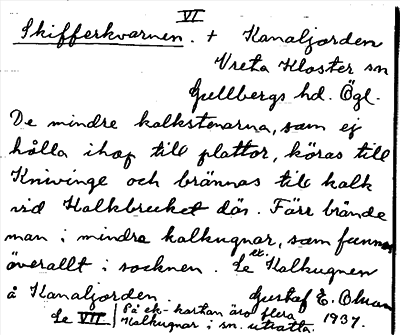 VI
Skifferkvarnen. + Kanaljorden
Vreta Kloster sn
Gullbergs hd. Ögl.
De mindre kalkstenarna, som ej
hålla ihop till plattor, köras till
Knivinge och brännas till kalk
vid Kalkbruket där. Förr brände
man i mindre kalkugnar, som funnos
överallt i socknen. Se Kalkugnen
å Kanaljorden. Gustaf E. 
Se VII På ek-kartan äro flera 1937.
kalkugnar i sn. utsatta.